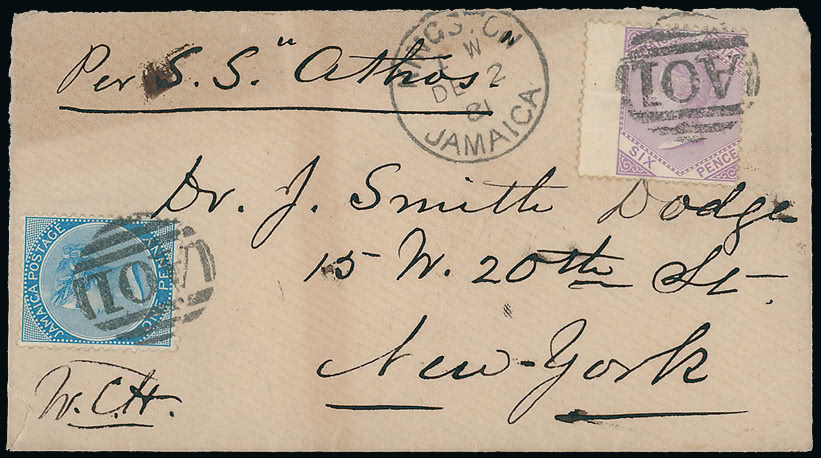 Per S.S. "Athos.
KINGSTON
W
DE 2
81
JAMAICA
A01
SIX PENCE
Dr. J. Smith Dodge
15 W. 20th St.
New-York
JAMAICA POSTAGE
ONE PENNY
A01
W.C.H.